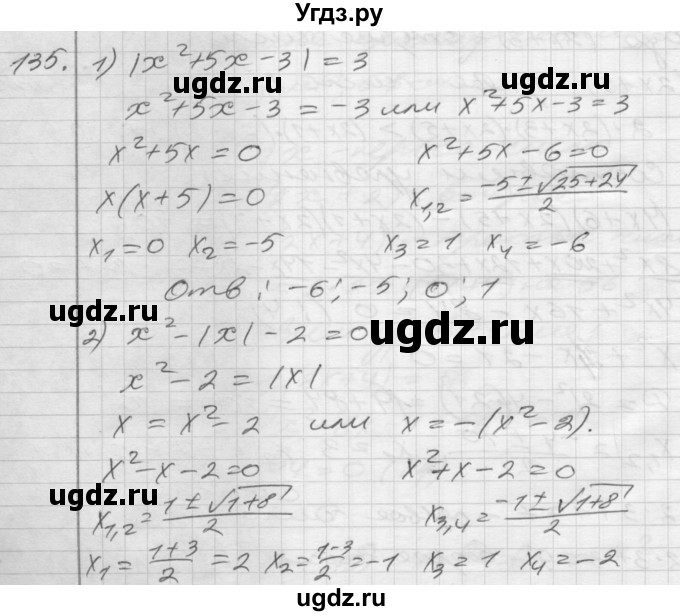 Угдз.ру
135. 1) |x²+5x-3| = 3
ugdz.ru ugdz.ru
x²+5x-3 = -3 или x²+5x-3=3
x²+5x=0 x²+5x-6=0
ugdz.ru
x(x+5)=0 x₁,₂ = (-5±√25+24)/2
x₁=0 x₂=-5 x₃=1 x₄=-6
Отв: -6; -5; 0; 1
ugdz.ru ugdz.ru
2) x²-|x|-2=0
x²-2=|x|
x = x²-2 или x=-(x²-2).
ugdz.ru ugdz.ru
x²-x-2=0 x²+x-2=0
ugdz.ru
x₁,₂=(1±√1+8)/2 x₃,₄=(-1±√1+8)/2
x₁=(1+3)/2=2 x₂=(1-3)/2=-1 x₃=1 x₄=-2
ugdz.ru ugdz.ru
Угдз.ру